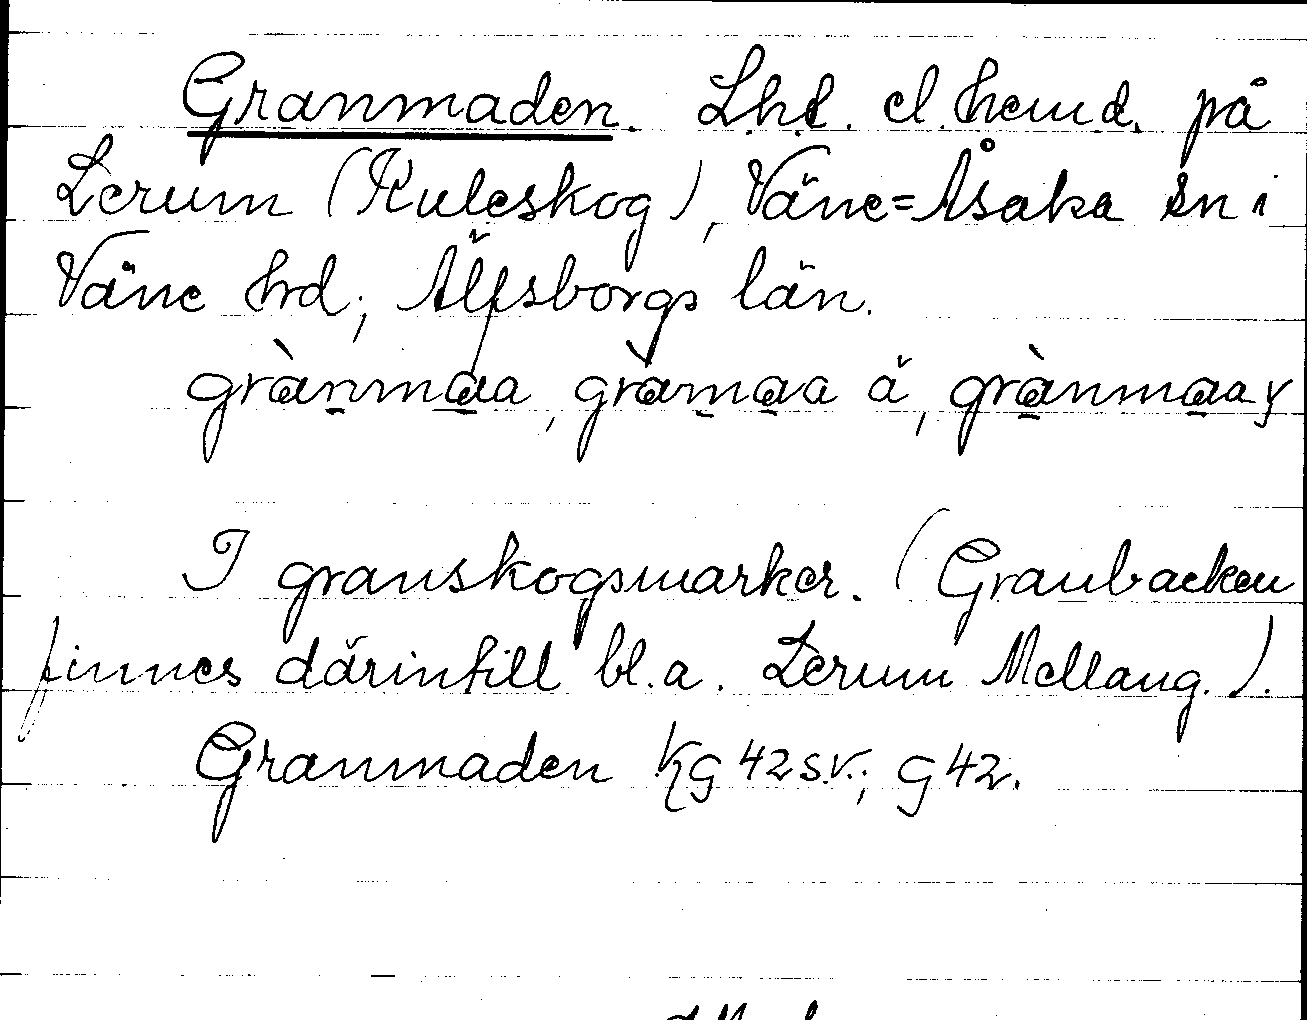 Granmaden. L.h.t. el. hemd. på
Lerum (Kuleskog), Väne=Åsaka sn i
Väne hrd; Älfsborgs län.
grànmaa, gràmaa ä, grànmaay
I granskogsmarker. (Granbacken
finnes därintill bl.a. Lerum Mellang.).
Granmaden Kg 42 s.v.; g 42.